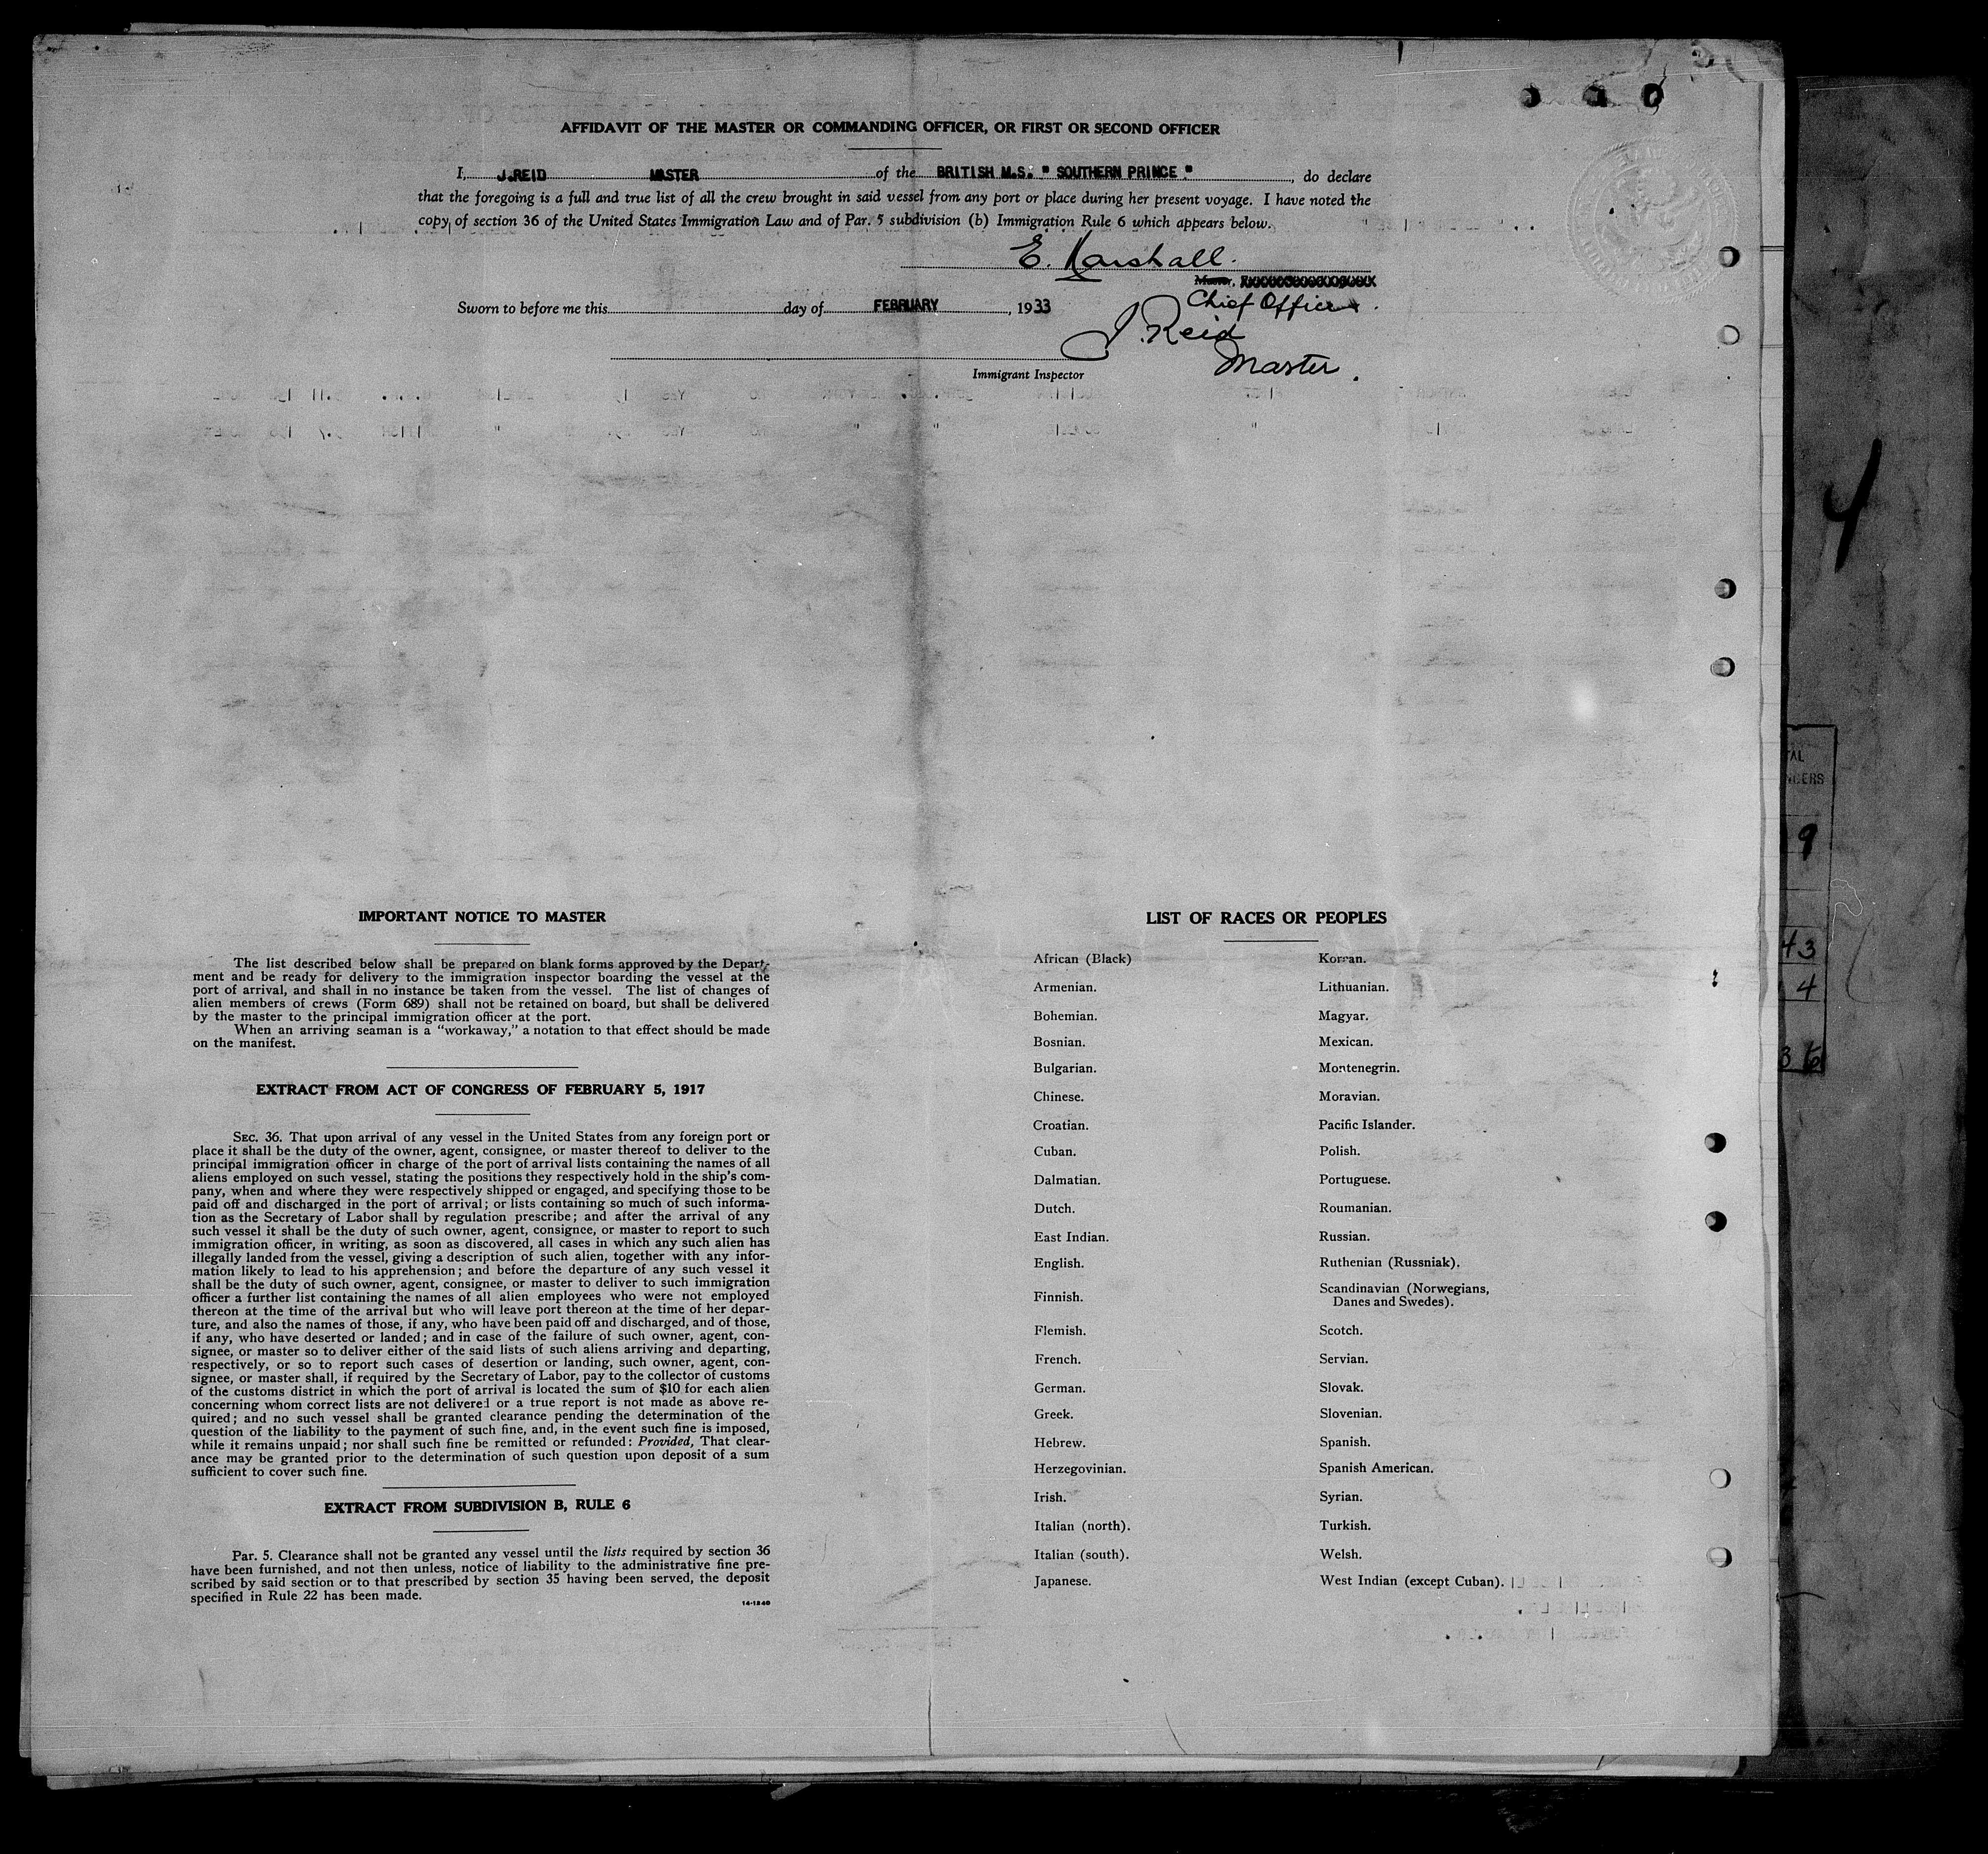 AFFIDAVIT OF THE MASTER OR COMMANDING OFFICER, OR FIRST OR SECOND OFFICER
I, J.REID MASTER of the BRITISH M.S. " SOUTHERN PRINCE " , do declare
that the foregoing is a full and true list of all the crew brought in said vessel from any port or place during her present voyage. I have noted the
copy of section 36 of the United States Immigration Law and of Par. 5 subdivision (b) Immigration Rule 6 which appears below.
E. Marshall.
Master,
Chief Officer.
Sworn to before me this day of FEBRUARY , 1933
J. Reid
Master.
Immigrant Inspector
4
TAL
NGERS
9
43
4
36
IMPORTANT NOTICE TO MASTER
The list described below shall be prepared on blank forms approved by the Depart-
ment and be ready for delivery to the immigration inspector boarding the vessel at the
port of arrival, and shall in no instance be taken from the vessel. The list of changes of
alien members of crews (Form 689) shall not be retained on board, but shall be delivered
by the master to the principal immigration officer at the port.
When an arriving seaman is a "workaway," a notation to that effect should be made
on the manifest.
EXTRACT FROM ACT OF CONGRESS OF FEBRUARY 5, 1917
SEC. 36. That upon arrival of any vessel in the United States from any foreign port or
place it shall be the duty of the owner, agent, consignee, or master thereof to deliver to the
principal immigration officer in charge of the port of arrival lists containing the names of all
aliens employed on such vessel, stating the positions they respectively hold in the ship's com-
pany, when and where they were respectively shipped or engaged, and specifying those to be
paid off and discharged in the port of arrival; or lists containing so much of such informa-
tion as the Secretary of Labor shall by regulation prescribe; and after the arrival of any
such vessel it shall be the duty of such owner, agent, consignee, or master to report to such
immigration officer, in writing, as soon as discovered, all cases in which any such alien has
illegally landed from the vessel, giving a description of such alien, together with any infor-
mation likely to lead to his apprehension; and before the departure of any such vessel it
shall be the duty of such owner, agent, consignee, or master to deliver to such immigration
officer a further list containing the names of all alien employees who were not employed
thereon at the time of the arrival but who will leave port thereon at the time of her depar-
ture, and also the names of those, if any, who have been paid off and discharged, and of those,
if any, who have deserted or landed; and in case of the failure of such owner, agent, con-
signee, or master so to deliver either of the said lists of such aliens arriving and departing,
respectively, or so to report such cases of desertion or landing, such owner, agent, con-
signee, or master shall, if required by the Secretary of Labor, pay to the collector of customs
of the customs district in which the port of arrival is located the sum of $10 for each alien
concerning whom correct lists are not delivered or a true report is not made as above re-
quired; and no such vessel shall be granted clearance pending the determination of the
question of the liability to the payment of such fine, and, in the event such fine is imposed,
while it remains unpaid; nor shall such fine be remitted or refunded: Provided, That clear-
ance may be granted prior to the determination of such question upon deposit of a sum
sufficient to cover such fine.
EXTRACT FROM SUBDIVISION B, RULE 6
Par. 5. Clearance shall not be granted any vessel until the lists required by section 36
have been furnished, and not then unless, notice of liability to the administrative fine pre-
scribed by said section or to that prescribed by section 35 having been served, the deposit
specified in Rule 22 has been made.
14-1240
LIST OF RACES OR PEOPLES
African (Black)
Armenian.
Bohemian.
Bosnian.
Bulgarian.
Chinese.
Croatian.
Cuban.
Dalmatian.
Dutch.
East Indian.
English.
Finnish.
Flemish.
French.
German.
Greek.
Hebrew.
Herzegovinian.
Irish.
Italian (north).
Italian (south).
Japanese.
Korean.
Lithuanian.
Magyar.
Mexican.
Montenegrin.
Moravian.
Pacific Islander.
Polish.
Portuguese.
Roumanian.
Russian.
Ruthenian (Russniak).
Scandinavian (Norwegians,
Danes and Swedes).
Scotch.
Servian.
Slovak.
Slovenian.
Spanish.
Spanish American.
Syrian.
Turkish.
Welsh.
West Indian (except Cuban).